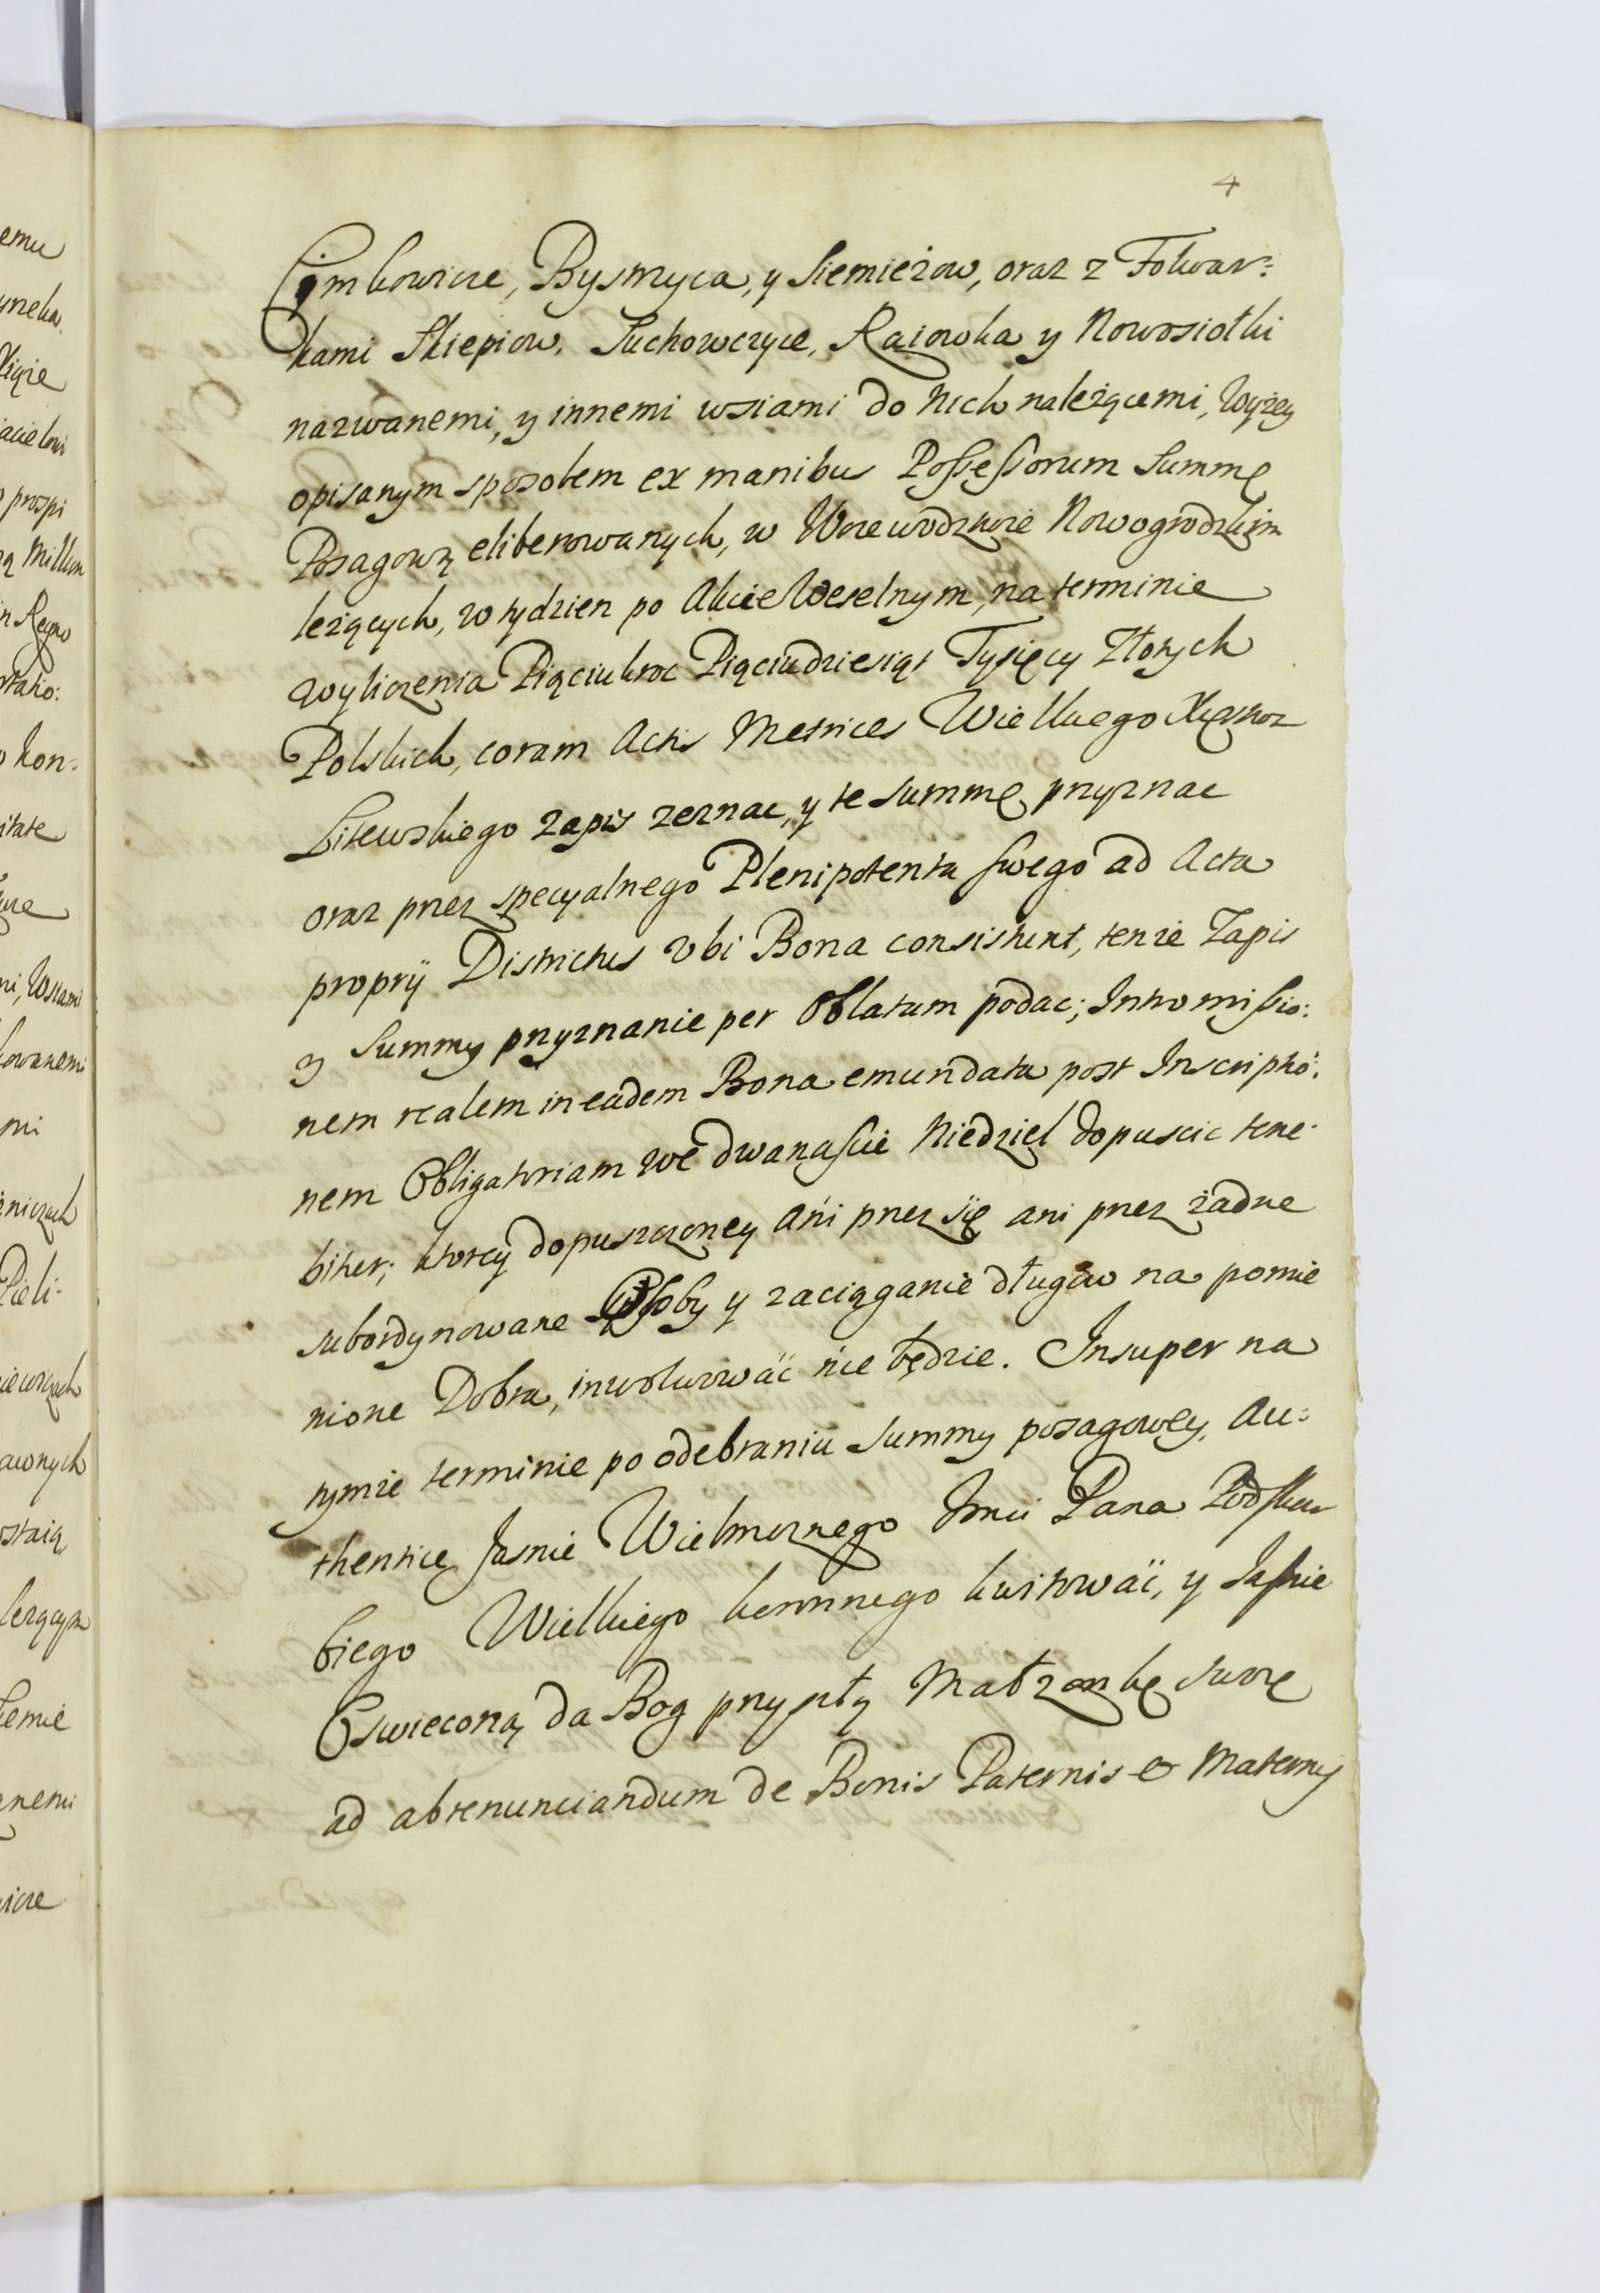 4
Cimkowicze, Bystrzyca, y Siemieżow, oraz z Folwar:
kami Skiepiow, Suchowczyce, Raiowka y Nowosiołki
nazwanemi, y innemi wsiami do Nich należącemi, Wyżey
opisanym sposobem ex manibus Possessorum Summą
Posagową eliberowanych, w Woiewodztwie Nowogrodzkim
leżących, w tydzien po Akcie Weselnym, na terminie
wyliczenia Pięciukroc Pięciudziesiąt Tysięcy Złotych
Polskich, coram Actis Metrices Wielkiego Xięstwa
Litewskiego zapis zeznac, y te summę przyznac
oraz przez specyalnego Plenipotenta swego ad Acta
proprij Districtus vbi Bona consistunt, tenże Zapis
y Summy przyznanie per Oblatam podac; Intromissio:
nem realem in eadem Bona emundata post Inscriptio:
nem Obligatoriam we dwanascie Niedziel dopuscic tene-
bitur; ktorey dopuszczoney ani przez się ani przez żadne
subordynowane Osoby y zaciąganie długow na pomie
nione Dobra, inwolwowäc nie będzie. Insuper na
tymże terminie po odebraniu summy posagowey, Au:
thenticę Jasnie Wielmoznego Jmci Pana Podskar
biego Wielkiego koronnego kwitowäc, y Jasnie
Oswieconą da Bog przyszłą Małzonkę swoię
ad abrenunciandum de Bonis Paternis et Maternis
emu
in Regno
kon:
itate
Wsiami
mi
Pieli-
leżącym